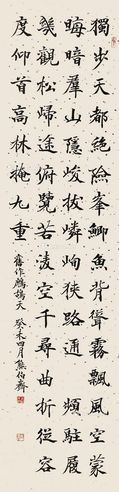 獨步天都絶險峯鯽魚背聳霧飄風空蒙
晦暗羣山隱峻拔嶙峋狹路通 頻駐履
幾觀松歸途俯覽若凌空千尋曲折從容
度仰首高林掩九重 舊作鷓鴣天 癸未四月熊伯齊